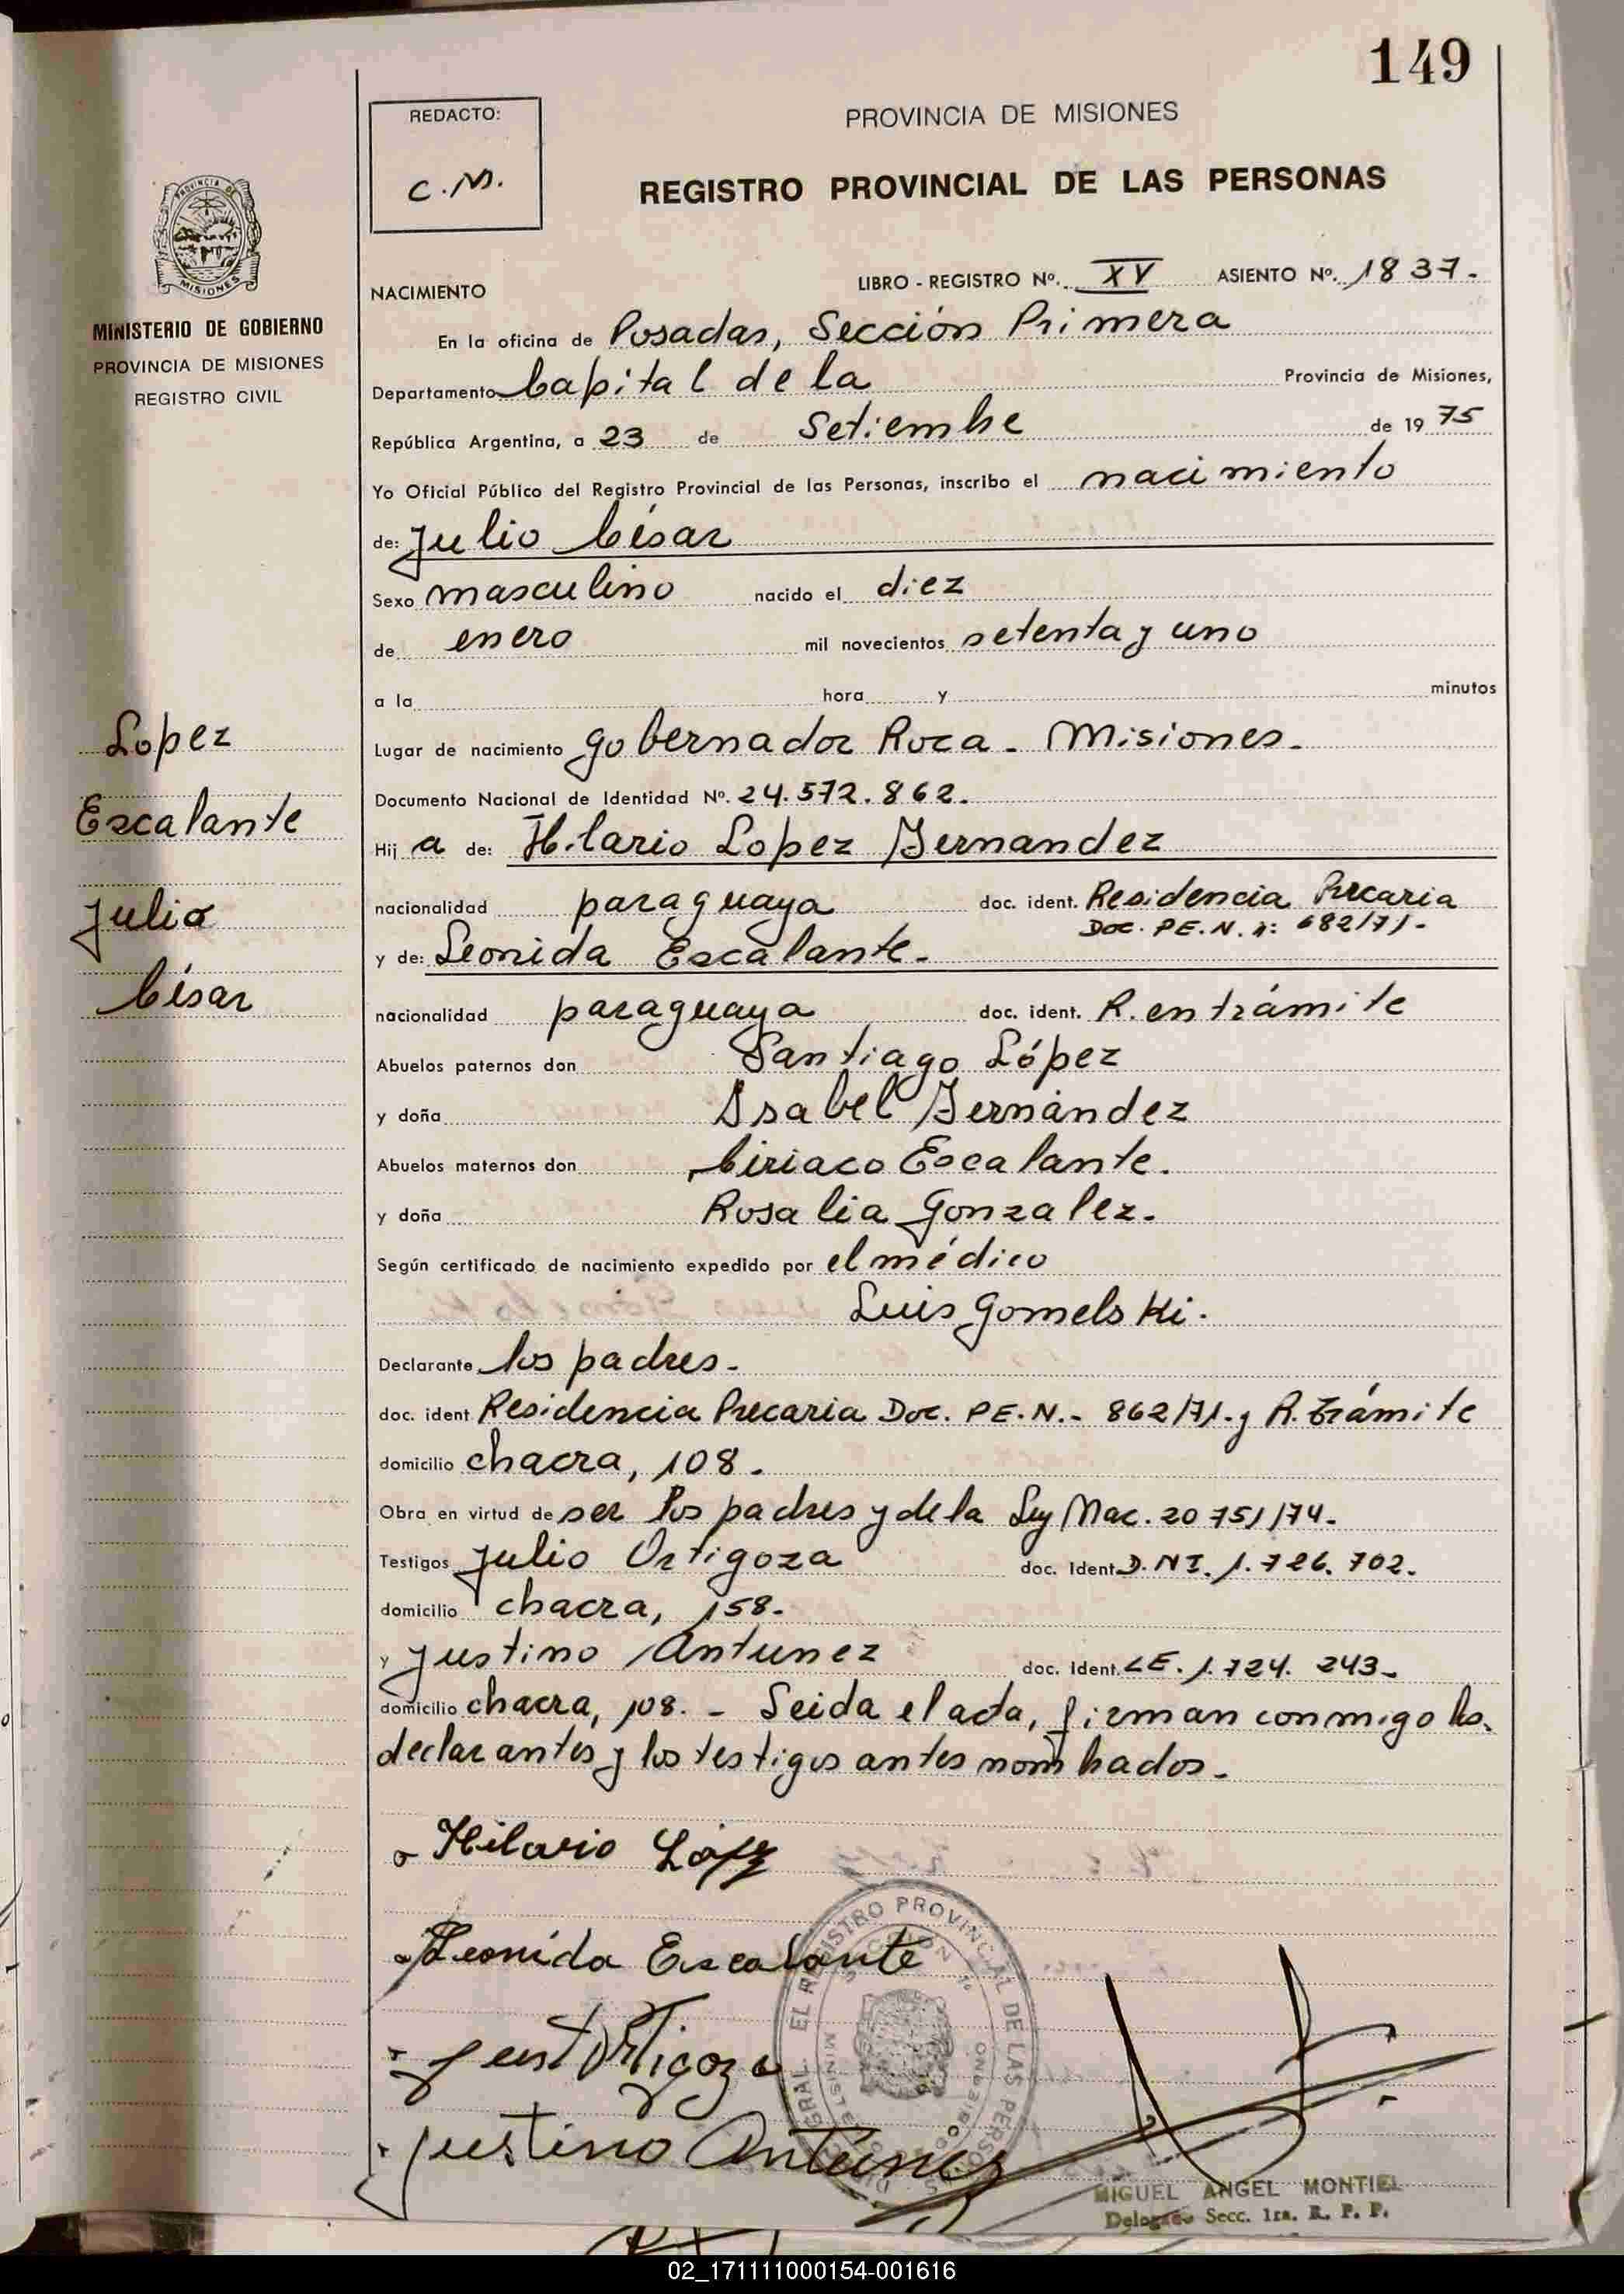 149
REDACTO:
C.M.
PROVINCIA DE MISIONES
REGISTRO PROVINCIAL DE LAS PERSONAS
PROVINCIA DE
MISIONES
MINISTERIO DE GOBIERNO
PROVINCIA DE MISIONES
REGISTRO CIVIL
NACIMIENTO
LIBRO - REGISTRO Nº. XV ASIENTO Nº. 1837.
En la oficina de Posadas, Sección Primera
Departamento Capital de la Provincia de Misiones,
República Argentina, a 23 de Setiembre de 1975
Yo Oficial Público del Registro Provincial de las Personas, inscribo el nacimiento
de: Julio César
Sexo masculino nacido el diez
de enero mil novecientos setenta y uno
a la hora y minutos
Lopez
Escalante
Julio
César
Lugar de nacimiento gobernador Roca - Misiones.
Documento Nacional de Identidad Nº. 24.572.862.
Hij a de: Hilario Lopez Fernandez
nacionalidad paraguaya doc. ident. Residencia Precaria
Doc. P.E.N. n: 682/71.
y de: Leonida Escalante.
nacionalidad paraguaya doc. ident. R. en trámite
Abuelos paternos don Santiago López
y doña Isabel Fernández
Abuelos maternos don Ciriaco Escalante.
y doña Rosalia Gonzalez.
Según certificado de nacimiento expedido por el médico
Luis Gomelski.
Declarante los padres.
doc. ident Residencia Precaria Doc. P.E.N.- 862/71. y R. Trámite
domicilio chacra, 108.
Obra en virtud de ser los padres y de la Ley Nac. 20 751/74.
Testigos Julio Ortigoza doc. Ident. D.N.I. 1.726.702.
domicilio chacra, 158.
y Justino Antunez doc. Ident. L.E. 1.724.243.
domicilio chacra, 108. - Leida el acta, firman conmigo los
declarantes y los testigos antes nombrados.
Hilario López
Leonida Escalante
Ortigoza
Justino Antúnez
EL REGISTRO PROVINCIAL DE LAS PERSONAS
MIGUEL ANGEL MONTIEL
Delegado Secc. 1ra. R. P. P.
02_171111000154-001616